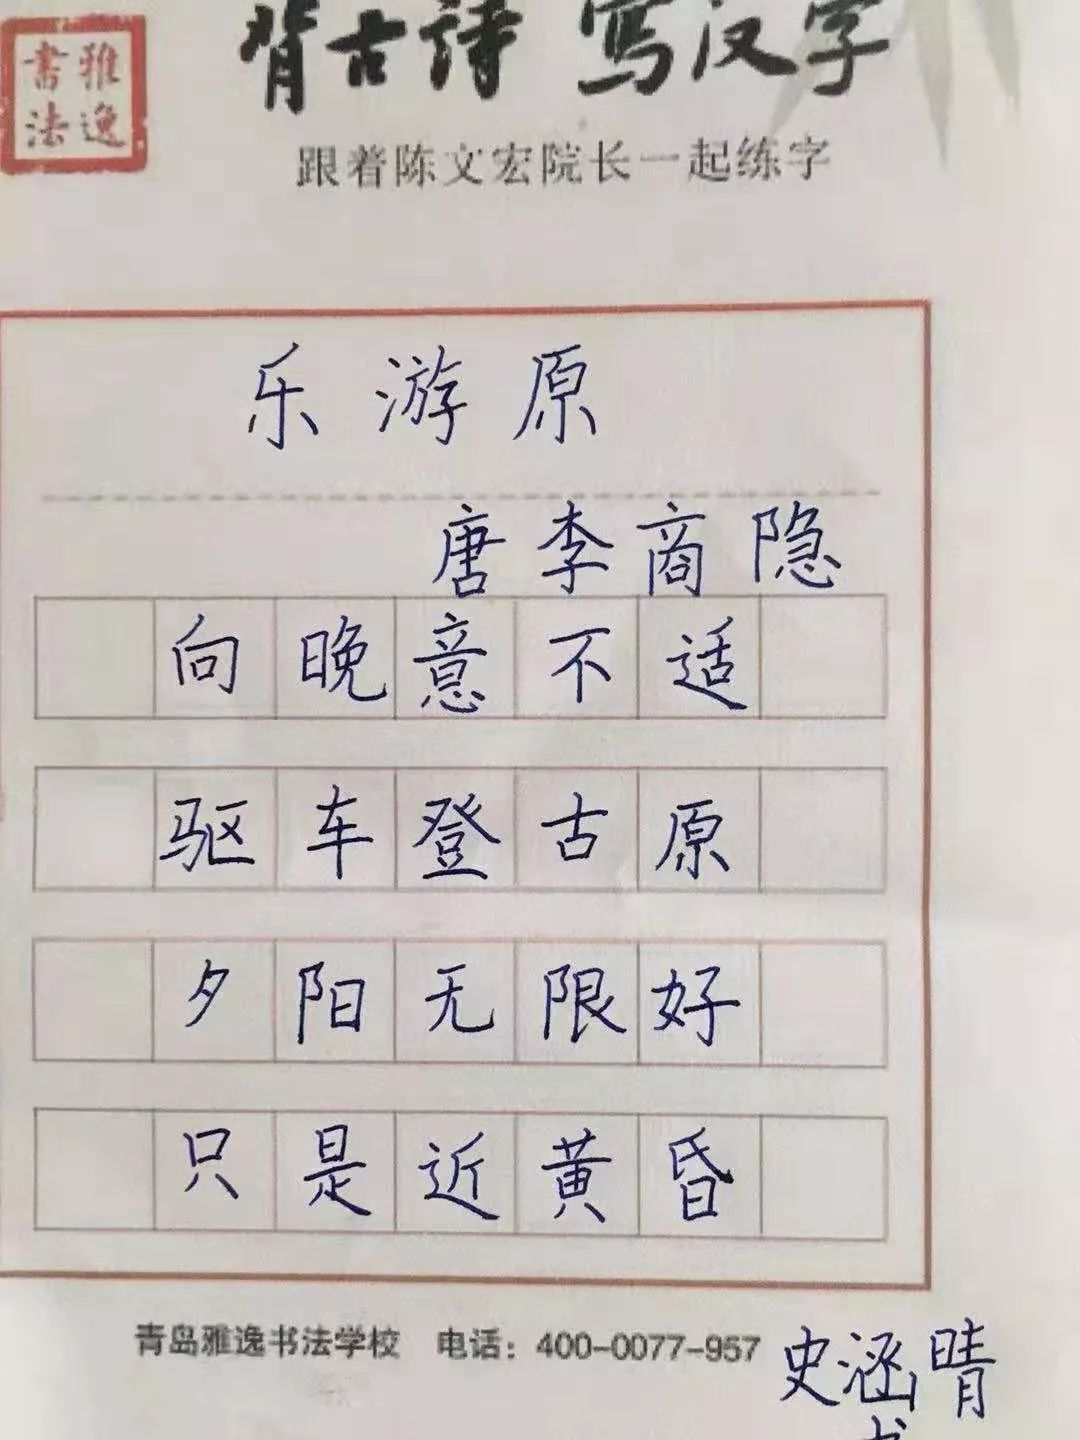 雅逸
書法
背古诗 写汉字
跟着陈文宏院长一起练字
乐游原
唐李商隐
向晚意不适
驱车登古原
夕阳无限好
只是近黄昏
青岛雅逸书法学校 电话：400-0077-957
史涵晴